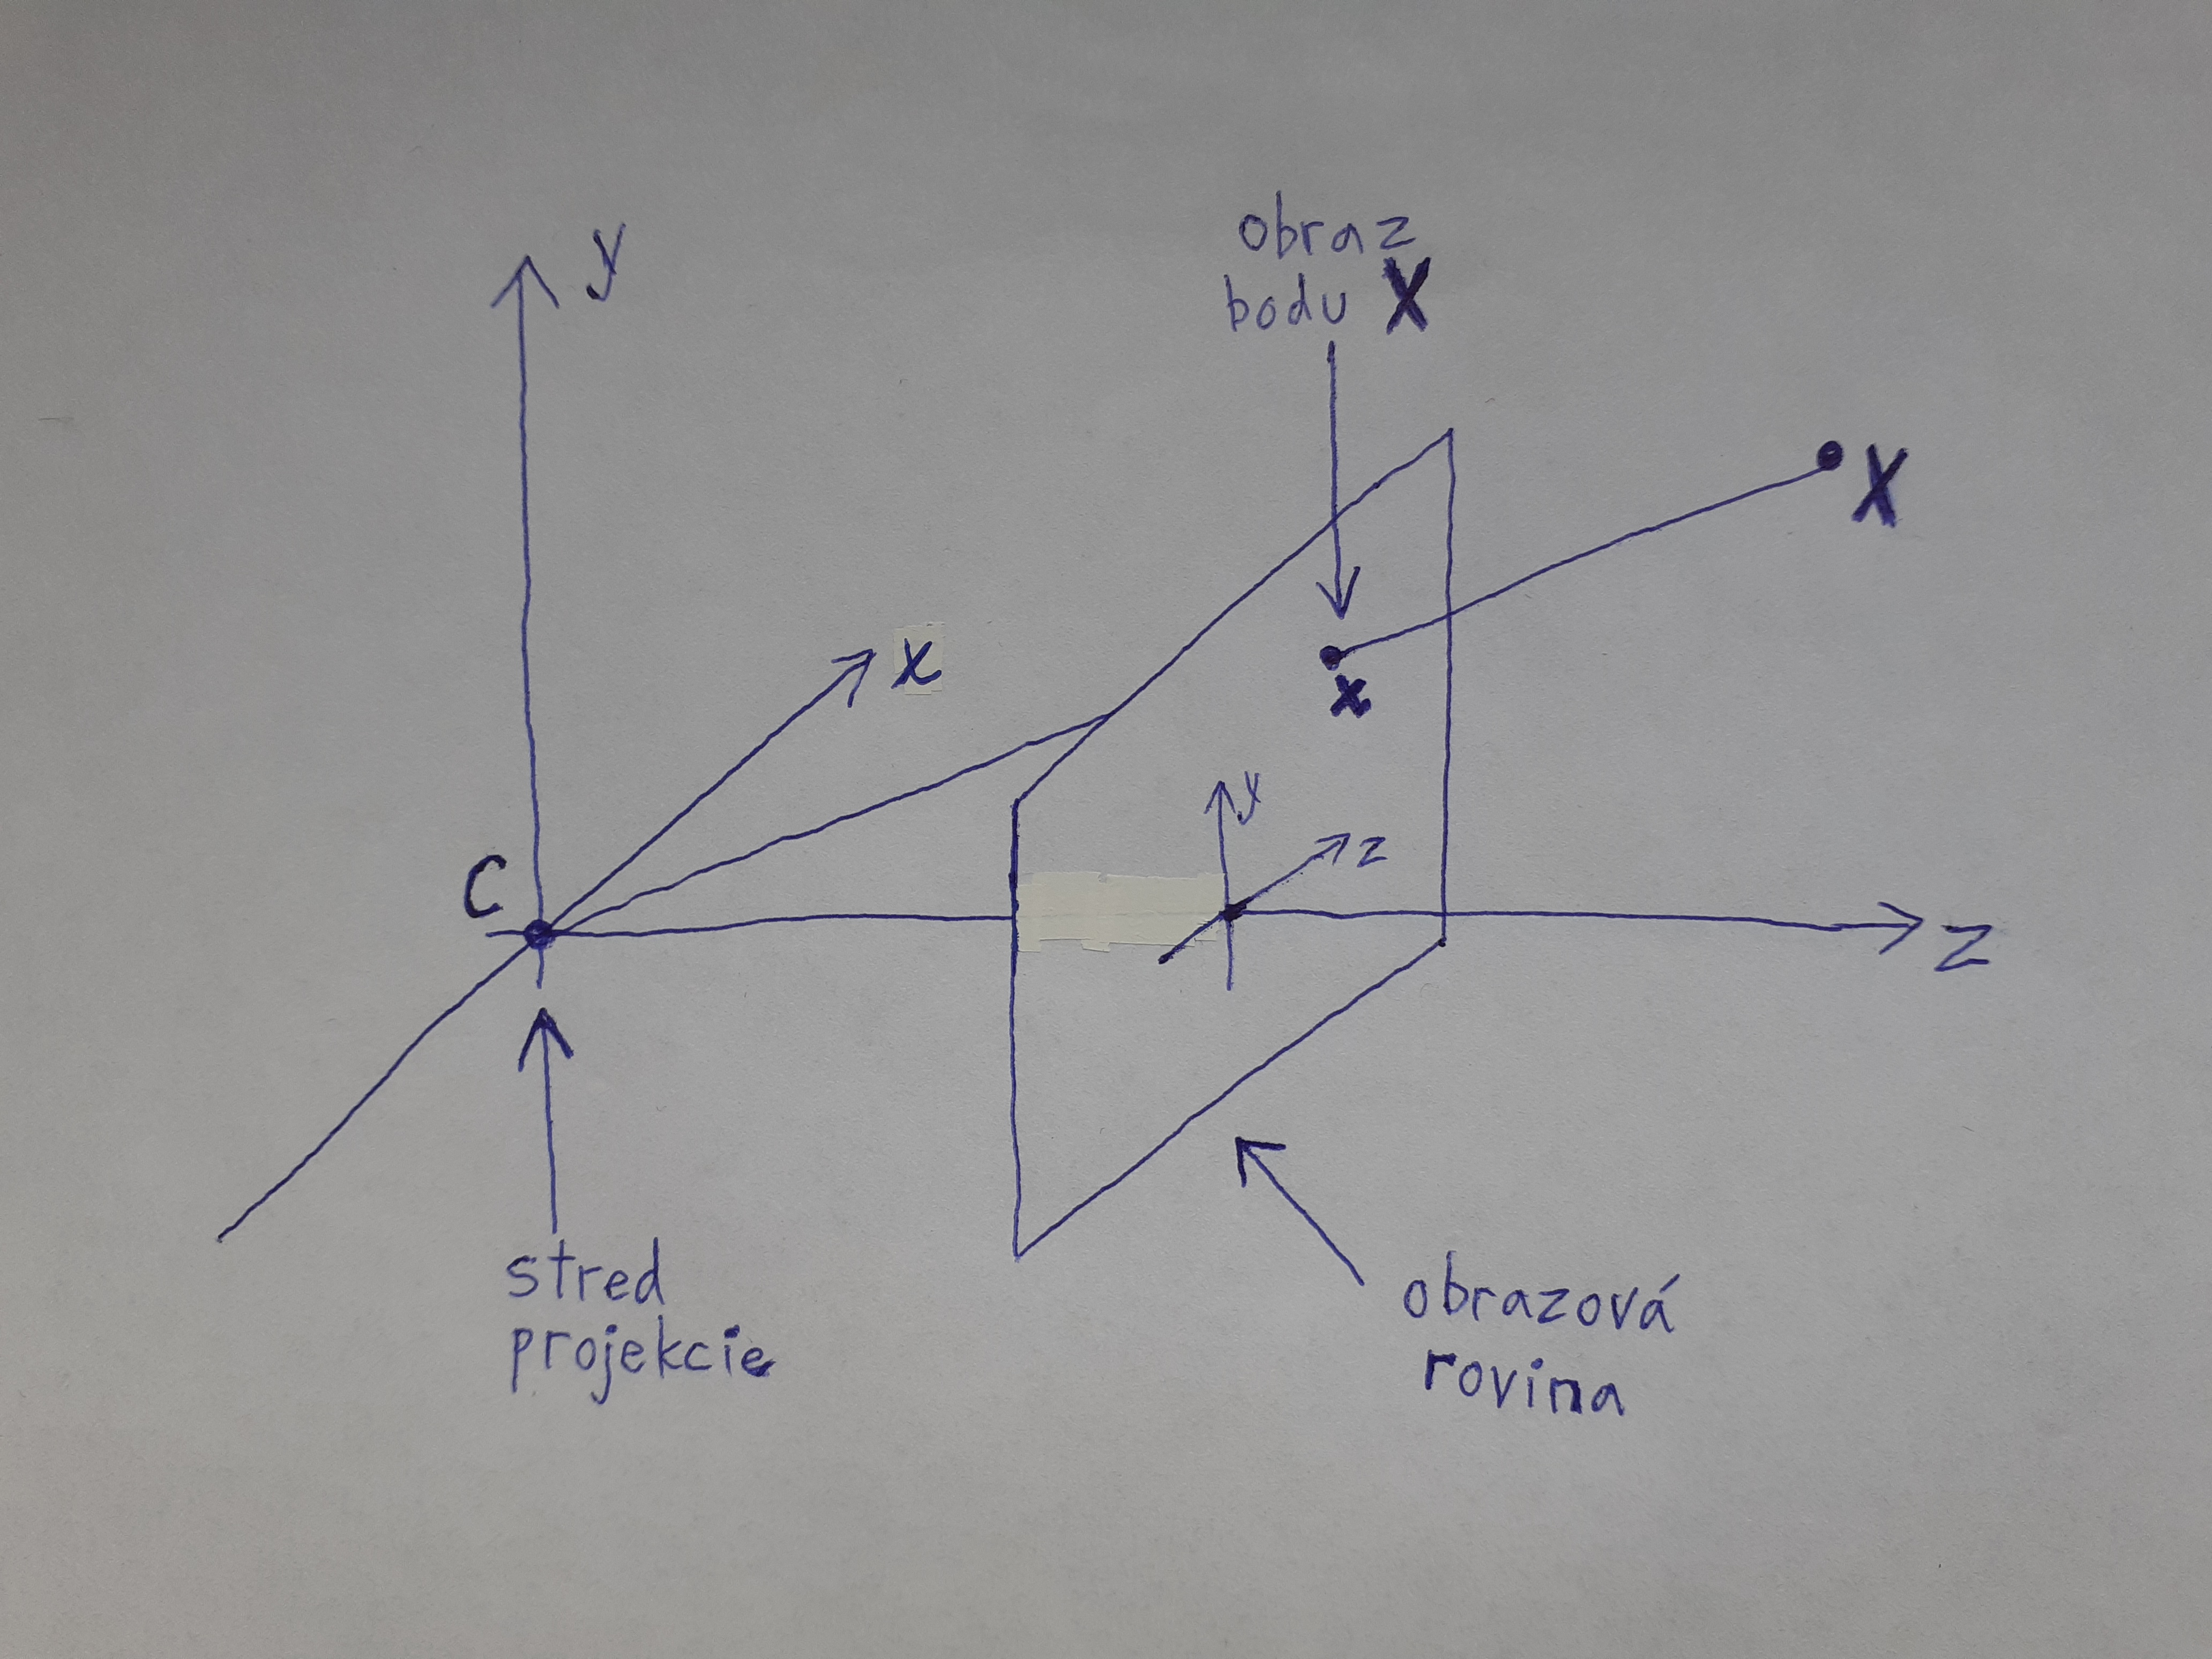 y
obraz
bodu X
X
x
x
y
z
C
z
stred
projekcie
obrazová
rovina